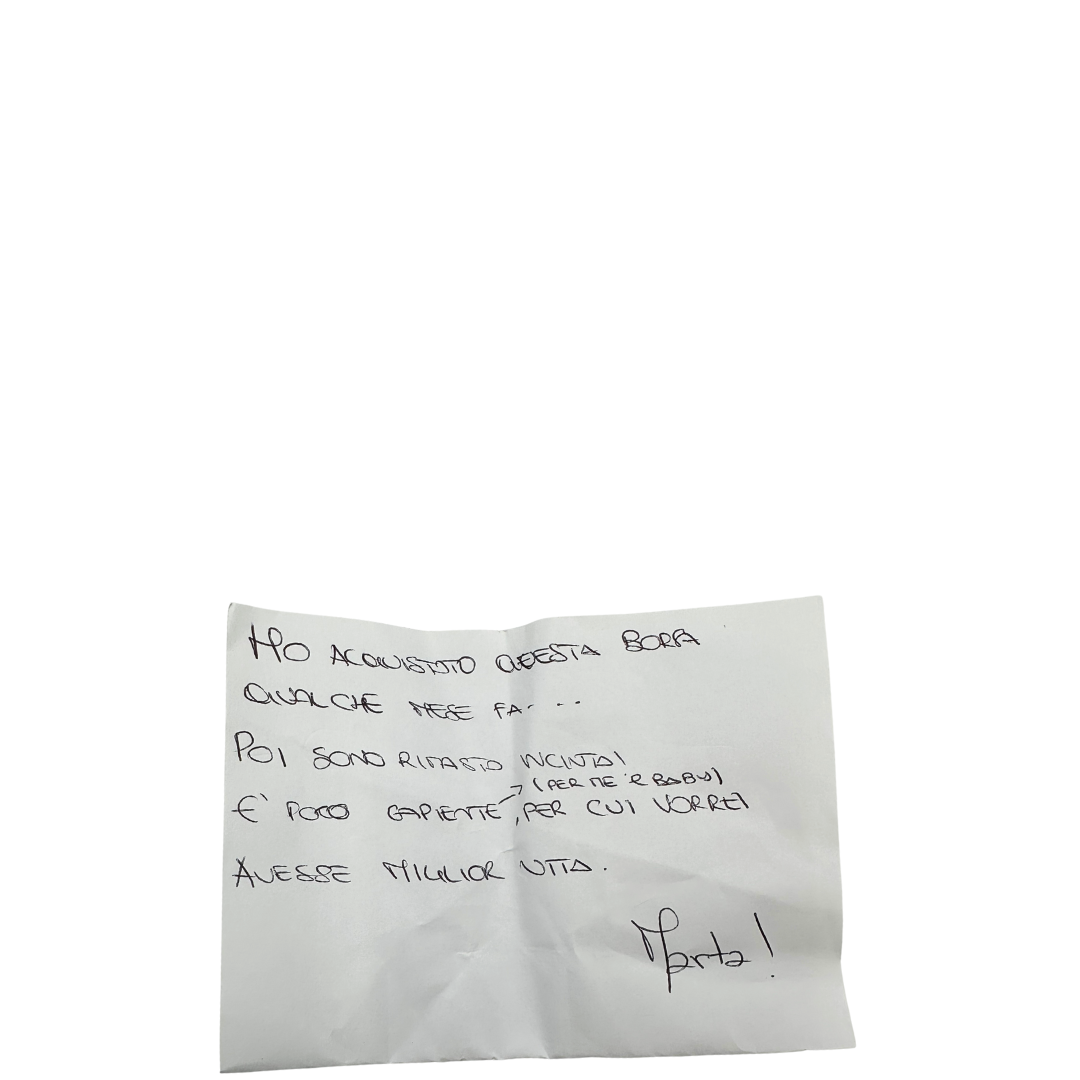 HO ACQUISTATO QUESTA BORSA
QUALCHE MESE FA...
POI SONO RIMASTA INCINTA!
(PER ME E BABY)
E' POCO CAPIENTE, PER CUI VORREI
AVESSE MIGLIOR VITA.
Marta!